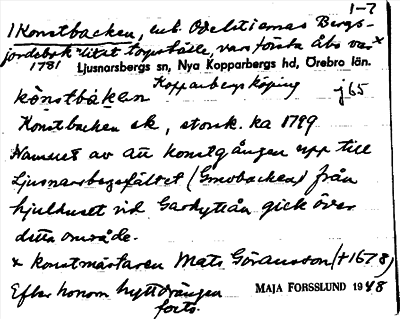 1-7
1 Konstbacken, enl. Odelstiernas Bergs-
jordebok "litet torpställe, vars första åbo var x
1781 Ljusnarsbergs sn, Nya Kopparbergs hd, Örebro län.
Kopparbergs köping
kònstbàken j65
Konstbacken ek, storsk. ka 1799.
Namnet av att konstgången upp till
Ljusnarsbergsfältet (Gruvbacken) från
hjulhuset vid Garhyttån gick över
detta område.
x konstmästaren Mats Göransson (+1678)
Efter honom hyttdrängen
forts.
MAJA FORSSLUND 1948